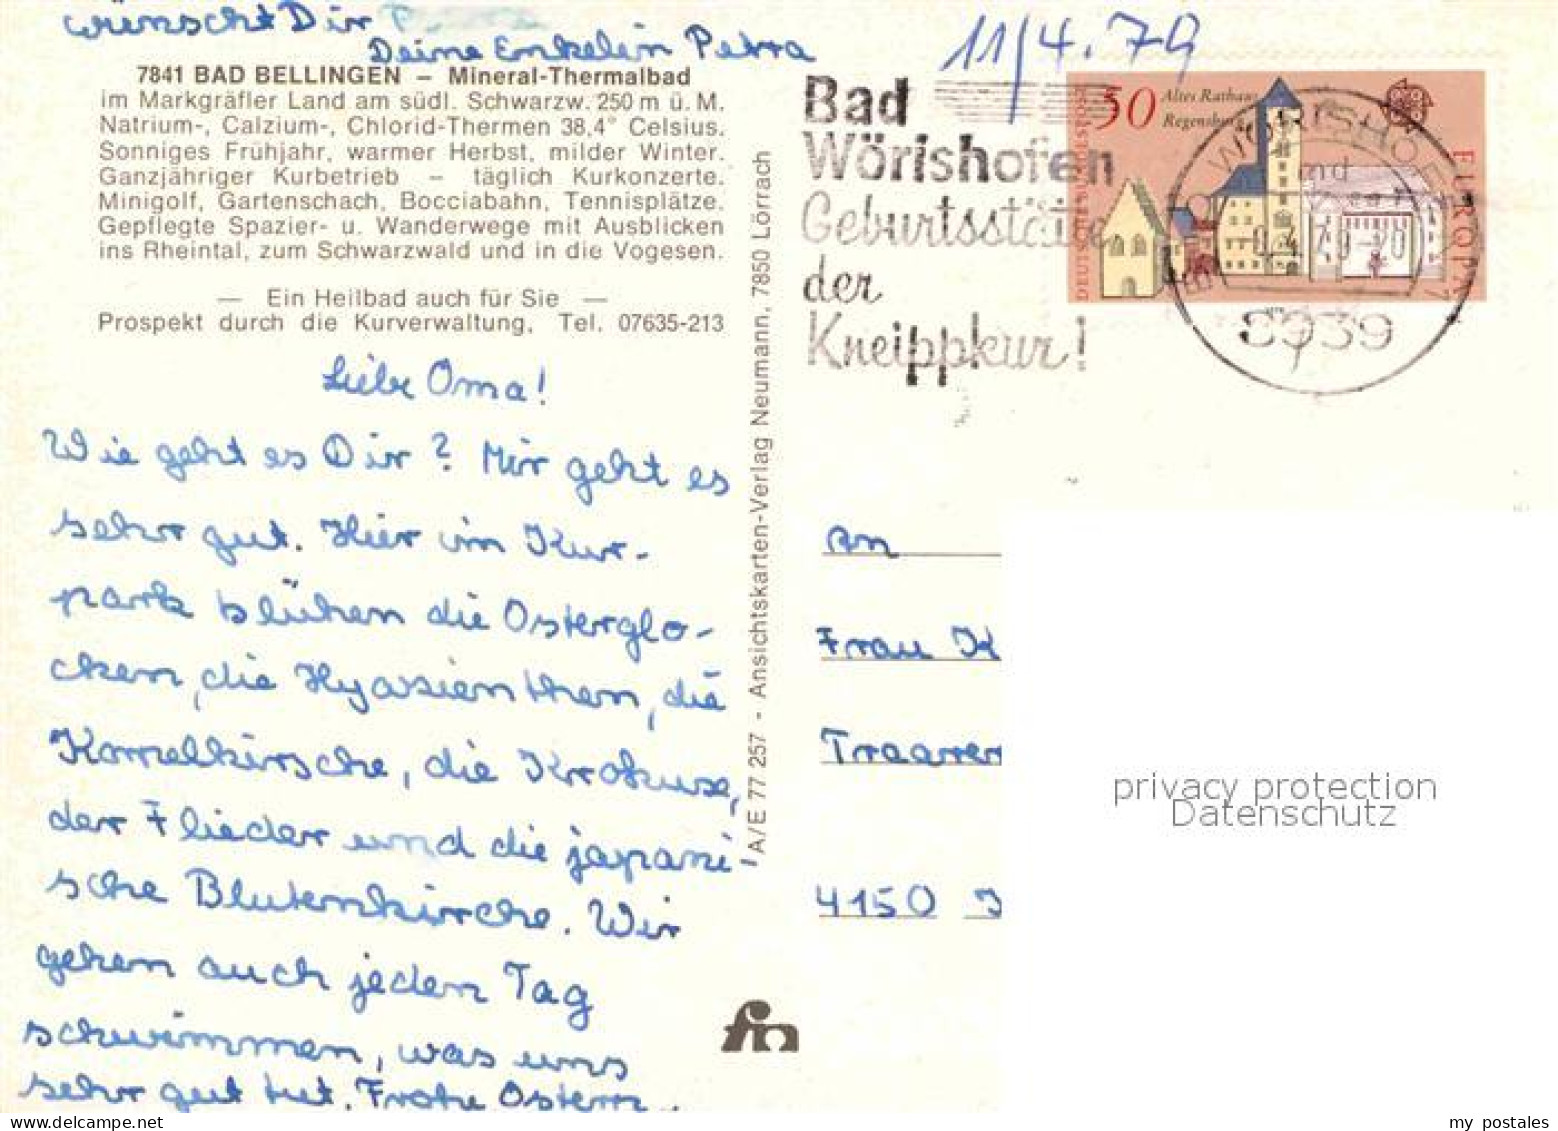 wünscht Dir
Deine Enkelin Petra
11/4.79
7841 BAD BELLINGEN – Mineral-Thermalbad
im Markgräfler Land am südl. Schwarzw. 250 m ü. M.
Natrium-, Calzium-, Chlorid-Thermen 38,4° Celsius.
Sonniges Frühjahr, warmer Herbst, milder Winter.
Ganzjähriger Kurbetrieb – täglich Kurkonzerte.
Minigolf, Gartenschach, Bocciabahn, Tennisplätze.
Gepflegte Spazier- u. Wanderwege mit Ausblicken
ins Rheintal, zum Schwarzwald und in die Vogesen.
— Ein Heilbad auch für Sie —
Prospekt durch die Kurverwaltung, Tel. 07635-213
Liebe Oma!
Wie geht es Dir? Mir geht es
sehr gut. Hier im Kur-
park blühen die Osterglo-
cken, die Hyazienthen, die
Kornelkirsche, die Krokuse,
der Flieder und die japani-
sche Blutenkirche. Wir
gehen auch jeden Tag
schwimmen, was uns
sehr gut tut. Frohe Ostern
A/E 77 257 - Ansichtskarten-Verlag Neumann, 7850 Lörrach
fin
Bad
Wörishofen
Geburtsstätte
der
Kneippkur!
DEUTSCHE BUNDESPOST
50
Altes Rathaus
Regensburg
EUROPA
BAD WÖRISHOFEN
8939
An
Frau K
Traarer
4150
privacy protection
Datenschutz
my postales